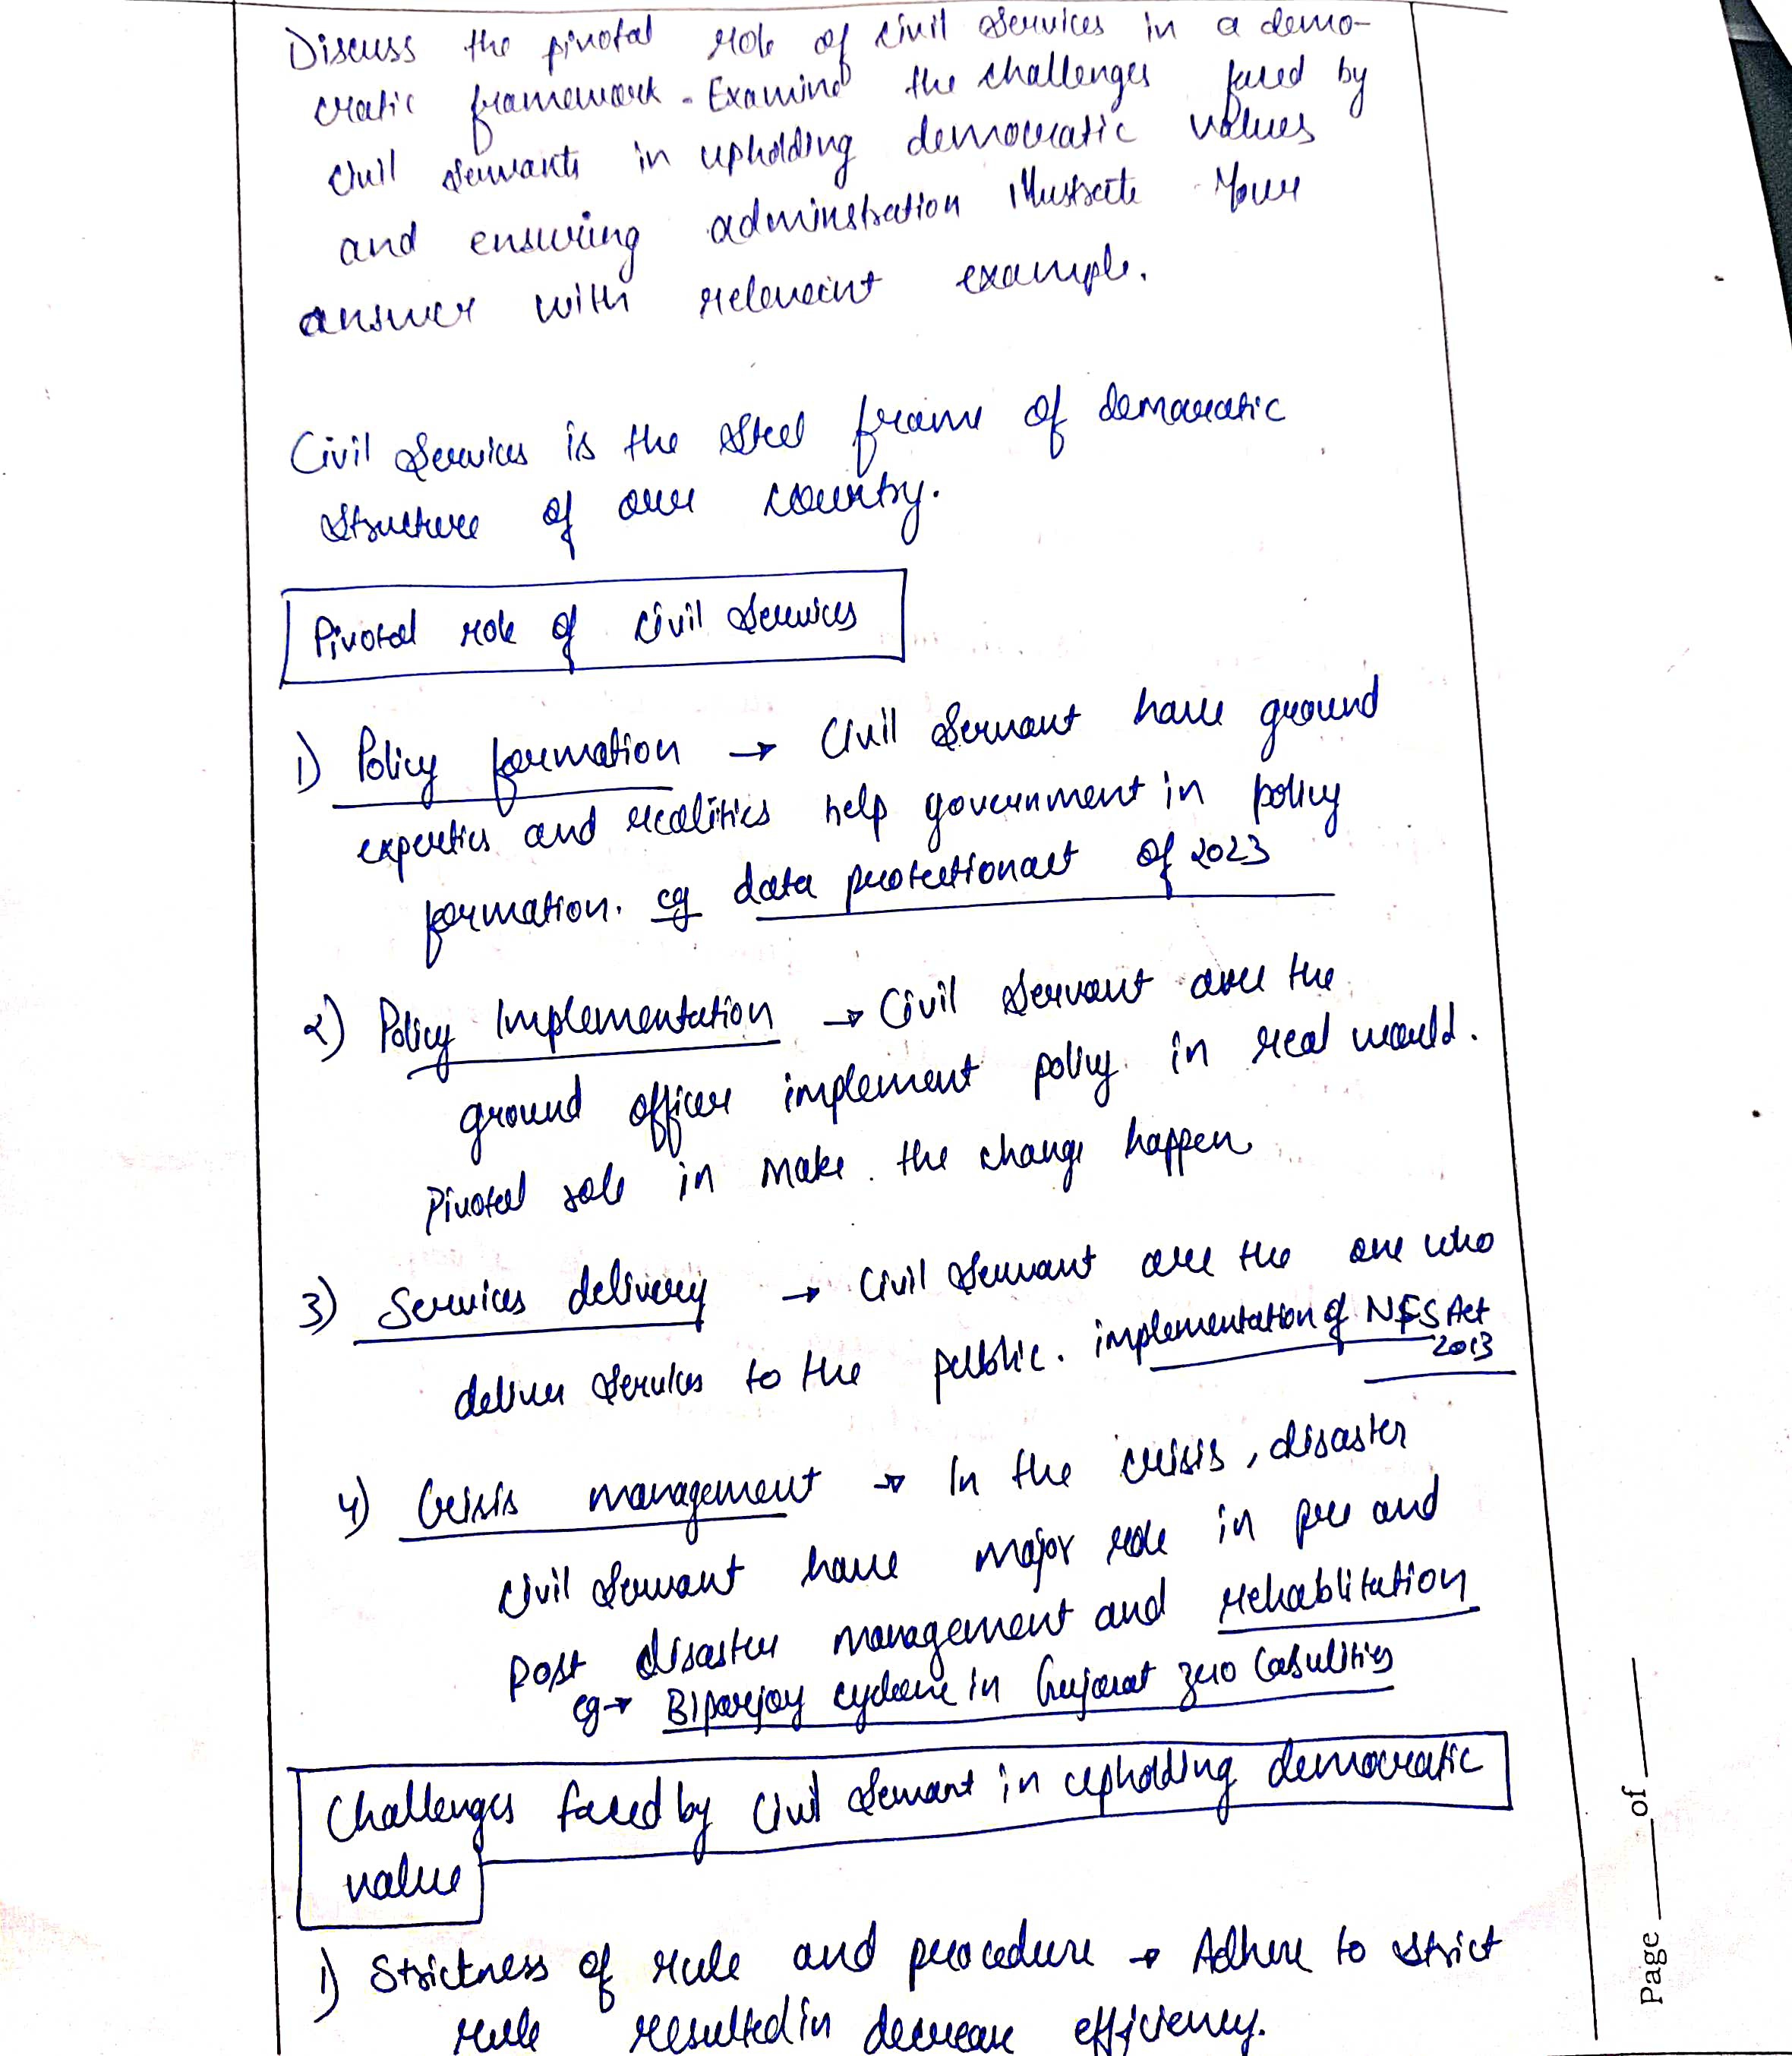 Discuss the pivotal role of civil services in a demo-
cratic framework. Examine the challenges faced by
civil servants in upholding democratic values
and ensuring adminstration illustrate your
answer with relevant example.
Civil Services is the steel frame of democratic
structure of our country.
Pivotal role of civil services
1) Policy formation → Civil servant have ground
experties and realities help government in policy
formation. eg data protection act of 2023
2) Policy Implementation → Civil servant are the
ground officer implement policy in real world.
Pivotal role in make the change happen
3) Services delivery → Civil servant are the one who
deliver services to the public. implementation of NFS Act
2013
4) Crisis management → In the crisis, disaster
civil servant have major role in pre and
post disaster management and rehablitation
eg → Biparjoy cyclone in Gujarat zero casulities
Challenges faced by civil servant in upholding democratic
value
1) Strictness of rule and procedure → Adhere to strict
rule resulted in decrease efficiency.
Page ____ of ____